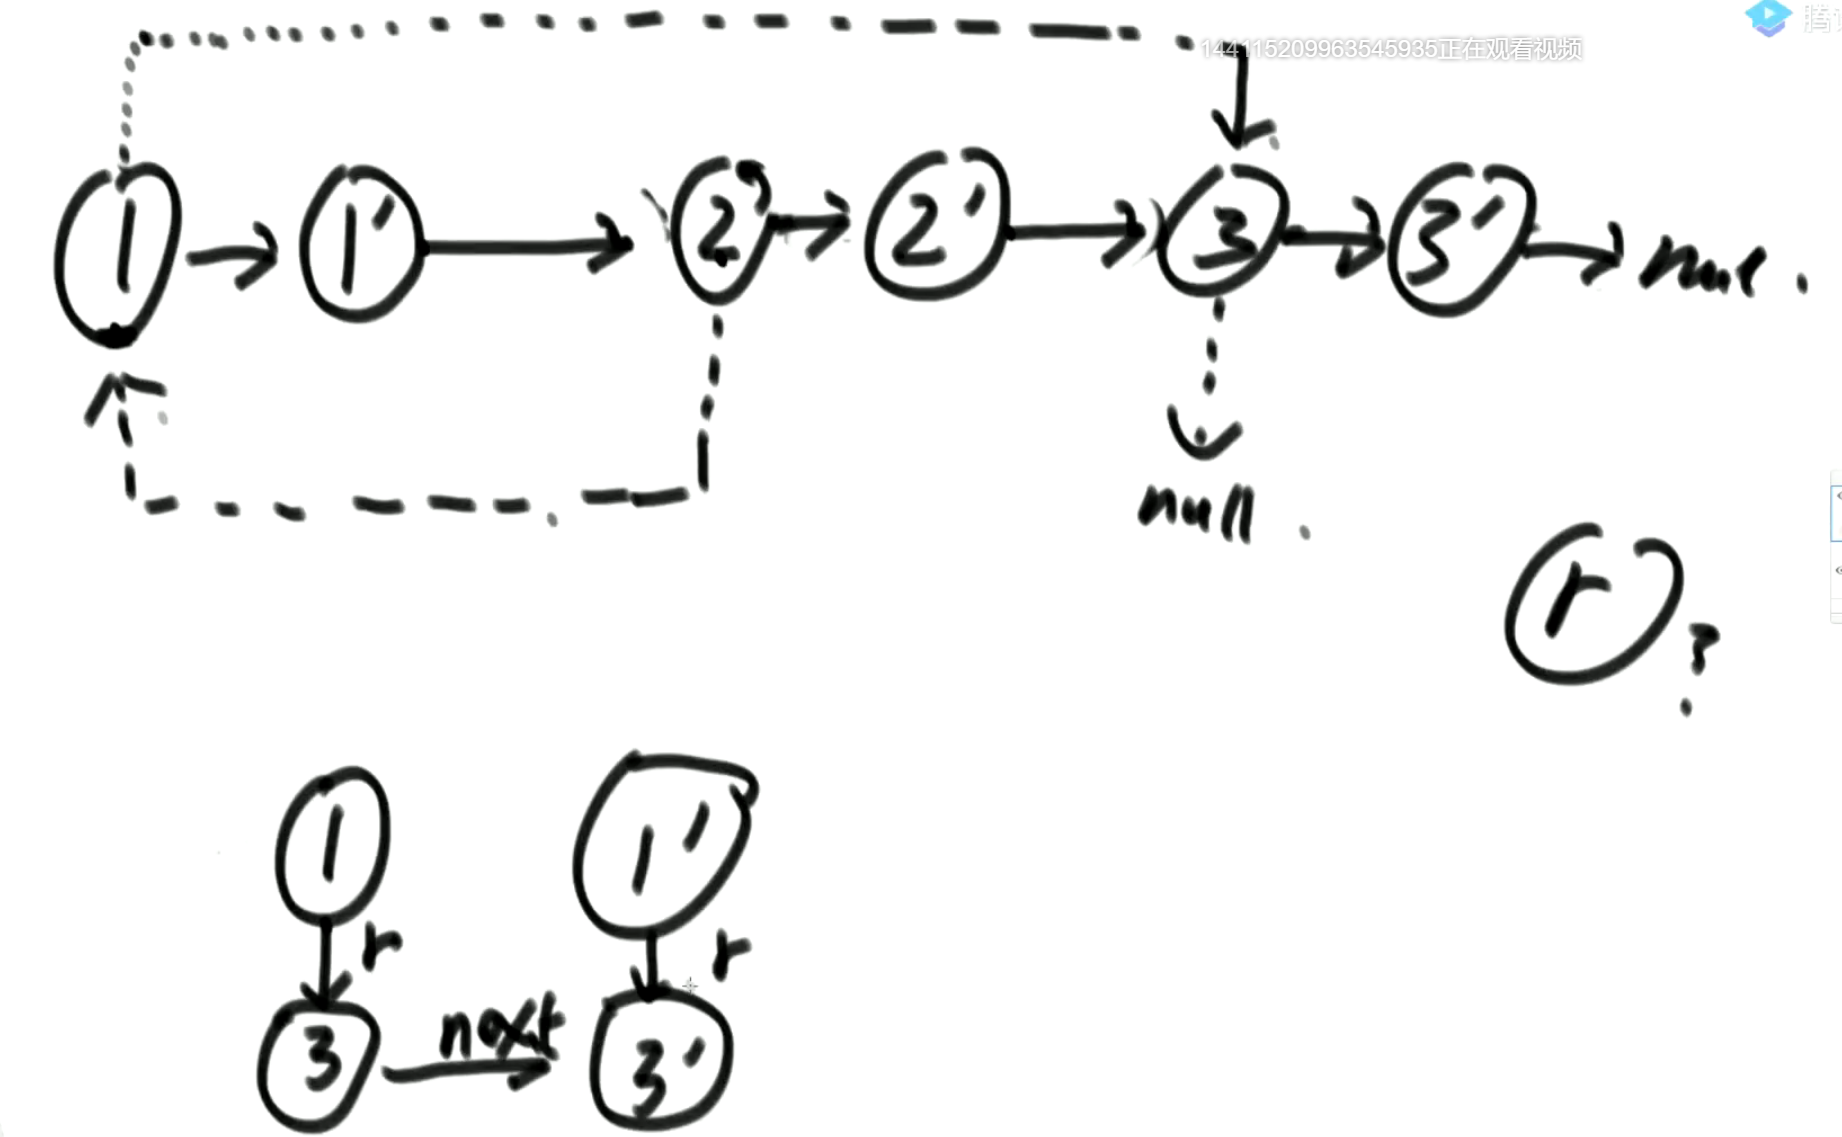 144115209963545935正在观看视频
1 1' 2 2' 3 3' null.
null.
r?
1 1'
r r
next
3 3'